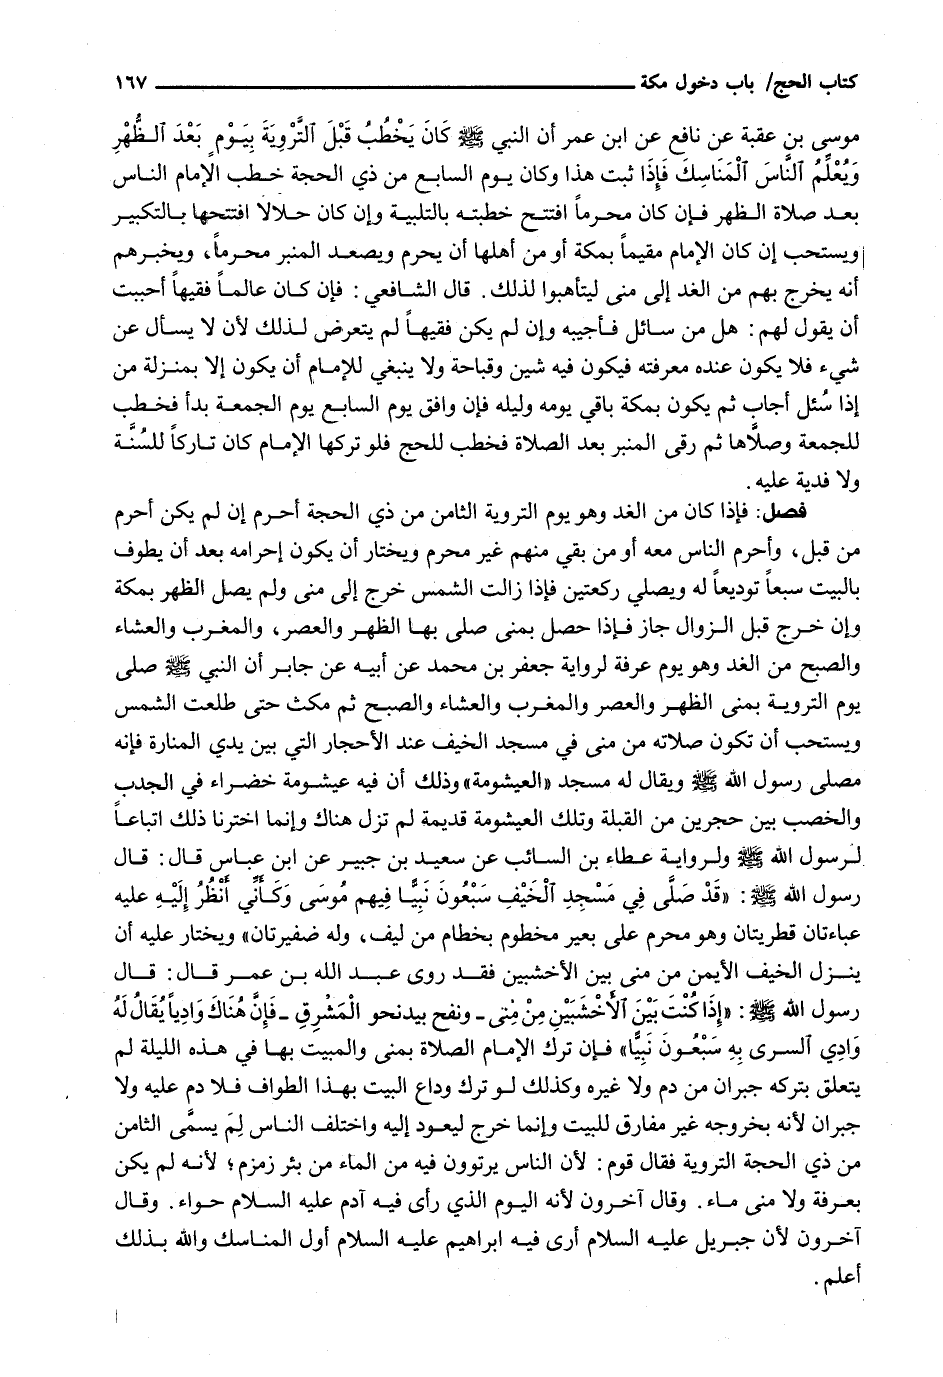 كتاب الحج/ باب دخول مكة ١٦٧
موسى بن عقبة عن نافع عن ابن عمر أن النبي ﷺ كَانَ يَخْطُبُ قَبْلَ ٱلتَّرْوِيَةَ بِيَوْمٍ بَعْدَ ٱلظُّهْرِ
وَيُعْلِّمُ ٱلنَّاسَ ٱلْمَنَاسِكَ فَإِذَا ثبت هذا وكان يوم السابع من ذي الحجة خطب الإمام الناس
بعد صلاة الظهر فإن كان محرماً افتتح خطبته بالتلبية وإن كان حلالا افتتحها بالتكبير
ويستحب إن كان الإمام مقيماً بمكة أو من أهلها أن يحرم ويصعد المنبر محرماً، ويخبرهم
أنه يخرج بهم من الغد إلى منى ليتأهبوا لذلك. قال الشافعي: فإن كان عالماً فقيهاً أحببت
أن يقول لهم: هل من سائل فأجيبه وإن لم يكن فقيهاً لم يتعرض لذلك لأن لا يسأل عن
شيء فلا يكون عنده معرفته فيكون فيه شين وقباحة ولا ينبغي للإمام أن يكون إلا بمنزلة من
إذا سُئل أجاب ثم يكون بمكة باقي يومه وليله فإن وافق يوم السابع يوم الجمعة بدأ فخطب
للجمعة وصلَّاها ثم رقى المنبر بعد الصلاة فخطب للحج فلو تركها الإمام كان تاركاً للسُنَّة
ولا فدية عليه.
فصل: فإذا كان من الغد وهو يوم التروية الثامن من ذي الحجة أحرم إن لم يكن أحرم
من قبل، وأحرم الناس معه أو من بقي منهم غير محرم ويختار أن يكون إحرامه بعد أن يطوف
بالبيت سبعاً توديعاً له ويصلي ركعتين فإذا زالت الشمس خرج إلى منى ولم يصل الظهر بمكة
وإن خرج قبل الزوال جاز فإذا حصل بمنى صلى بها الظهر والعصر، والمغرب والعشاء
والصبح من الغد وهو يوم عرفة لرواية جعفر بن محمد عن أبيه عن جابر أن النبي ﷺ صلى
يوم التروية بمنى الظهر والعصر والمغرب والعشاء والصبح ثم مكث حتى طلعت الشمس
ويستحب أن تكون صلاته من منى في مسجد الخيف عند الأحجار التي بين يدي المنارة فإنه
مصلى رسول الله ﷺ ويقال له مسجد «العيشومة» وذلك أن فيه عيشومة خضراء في الجدب
والخصب بين حجرين من القبلة وتلك العيشومة قديمة لم تزل هناك وإنما اخترنا ذلك اتباعاً
لرسول الله ﷺ ولرواية عطاء بن السائب عن سعيد بن جبير عن ابن عباس قال: قال
رسول الله ﷺ: «قَدْ صَلَّى فِي مَسْجِدِ ٱلْخَيْفِ سَبْعُونَ نَبِيًّا فِيهم مُوسَى وَكَأَنِّي أَنْظُرُ إِلَيْهِ عليه
عباءتان قطريتان وهو محرم على بعير مخطوم بخطام من ليف، وله ضفيرتان» ويختار عليه أن
ينزل الخيف الأيمن من منى بين الأخشبين فقد روى عبد الله بن عمر قال: قال
رسول الله ﷺ: «إِذَا كُنْتَ بَيْنَ ٱلأَخْشَبَيْنِ مِنْ مِنًى - ونفح بيدنحو الْمَشْرِقِ - فَإِنَّ هُنَاكَ وَادِياً يُقَالُ لَهُ
وَادِي ٱلسرى بِهِ سَبْعُونَ نَبِيًّا» فإن ترك الإمام الصلاة بمنى والمبيت بها في هذه الليلة لم
يتعلق بتركه جبران من دم ولا غيره وكذلك لو ترك وداع البيت بهذا الطواف فلا دم عليه ولا
جبران لأنه بخروجه غير مفارق للبيت وإنما خرج ليعود إليه واختلف الناس لِمَ يسمَّى الثامن
من ذي الحجة التروية فقال قوم: لأن الناس يرتوون فيه من الماء من بئر زمزم؛ لأنه لم يكن
بعرفة ولا منى ماء. وقال آخرون لأنه اليوم الذي رأى فيه آدم عليه السلام حواء. وقال
آخرون لأن جبريل عليه السلام أرى فيه ابراهيم عليه السلام أول المناسك والله بذلك
أعلم.